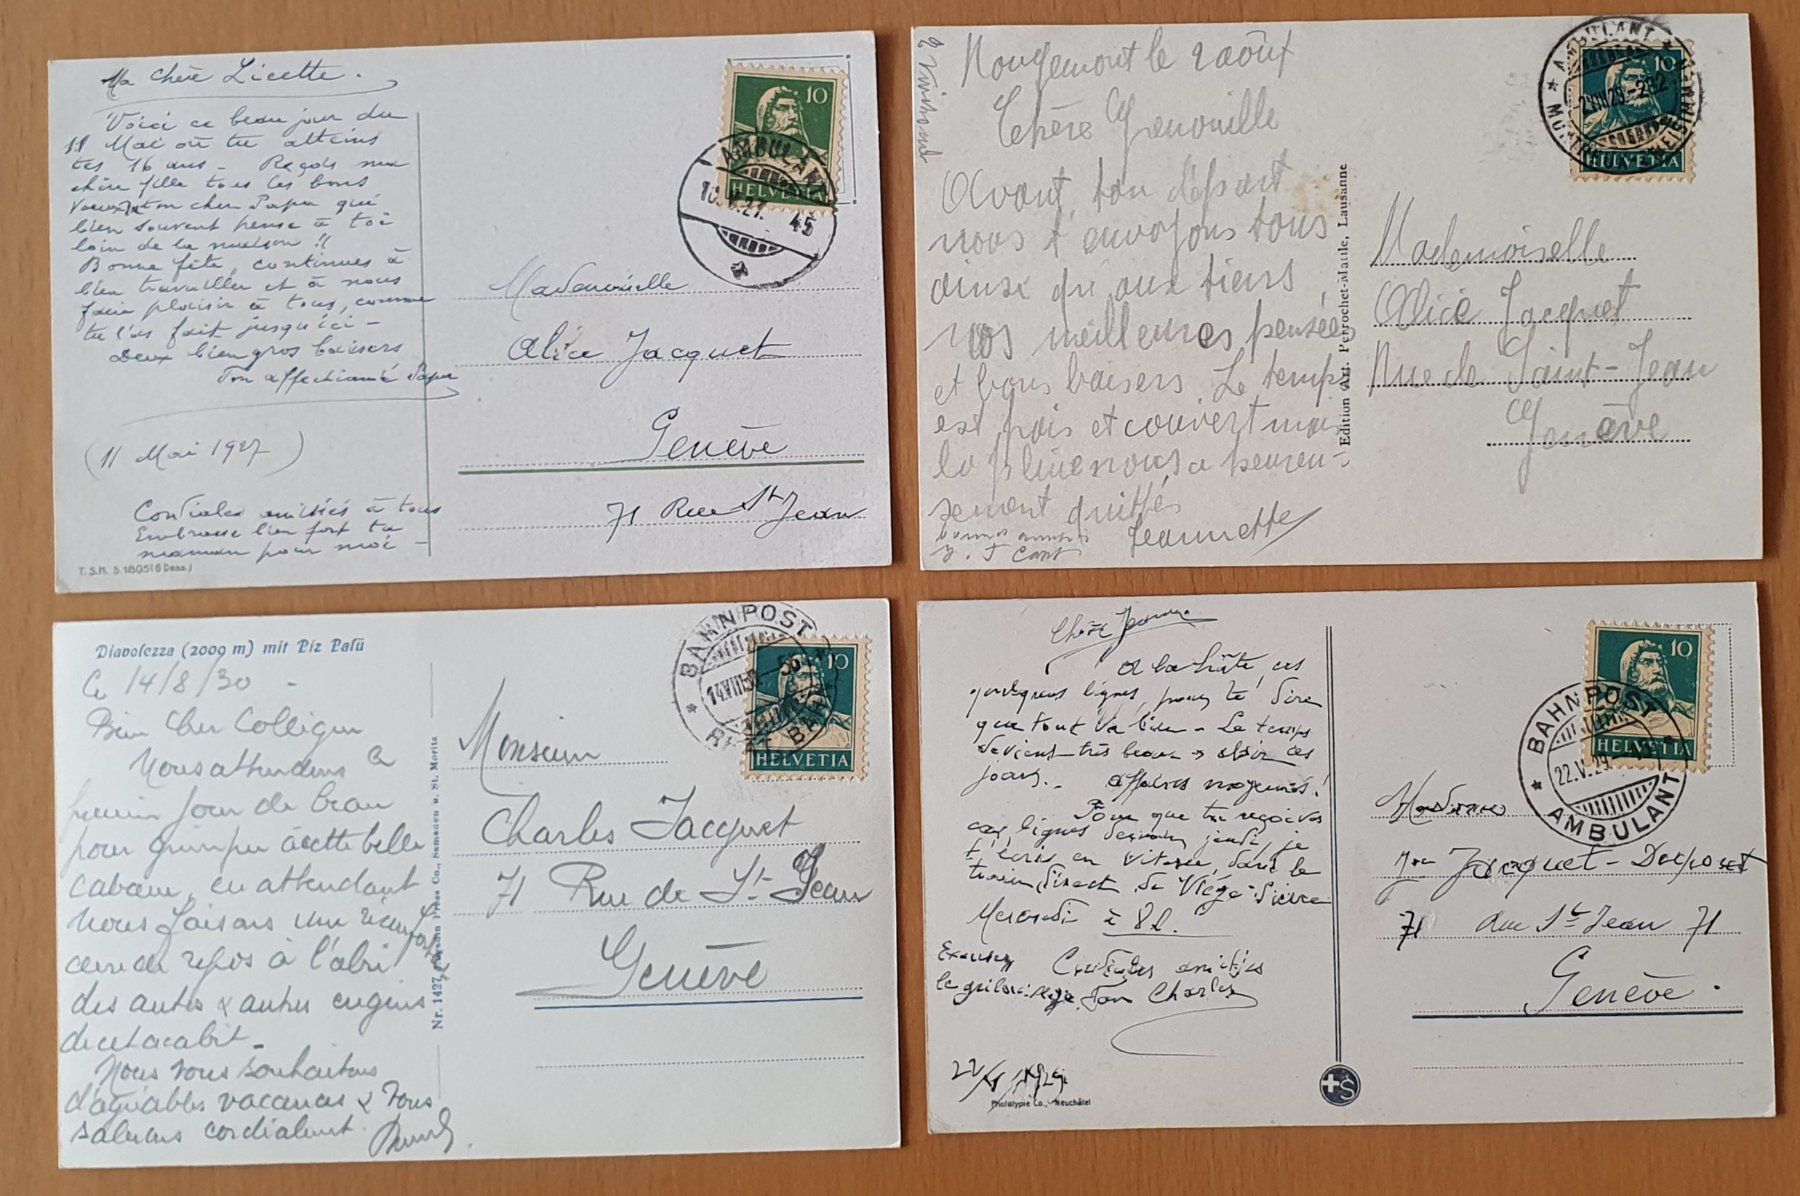 Ma chère Licette.
Voici ce beau jour du
11 Mai où tu atteins
tes 16 ans - Reçois ma
chère fille tous les bons
voeux de ton cher Papa qui
bien souvent pense à toi
loin de la maison !!
Bonne fête, continues à
bien travailler et à nous
faire plaisir à tous, comme
tu l'as fait jusqu'ici -
Deux bien gros baisers
Ton affectionné Papa
(11 Mai 1927)
Cordiales amitiés à tous
Embrasse bien fort ta
maman pour moi -
T. S. M.
10
HELVETIA
AMBULANT
10.V.27.
45
Mademoiselle
Alice Jacquet
Genève
71 Rue St Jean
Rougemont le 2 août
Chère Grenouille
Avant ton départ
nous t'envoyons tous
ainsi qu'aux tiens
nos meilleures pensées
et bons baisers. Le temps
est gris et couvert mais
la pluie nous a heureu-
sement quittés
Jeannette
Edition Art. Perrochet-Matile, Lausanne
10
HELVETIA
AMBULANT
2.VIII.29
232
Mademoiselle
Alice Jacquet
Rue de Saint-Jean
Genève
Diavolezza (2000 m) mit Piz Palü
Ce 14/8/30 -
Bien cher Collègue
Nous attendons le
premier jour de beau
pour grimper à cette belle
cabane, en attendant
nous faisons une
cure de repos à l'abri
des autos & autres engins
de cet acabit -
Nous vous souhaitons
d'agréables vacances & vous
saluons cordialement.
Samaden u. St. Moritz
BAHNPOST
10
HELVETIA
Monsieur
Charles Jacquet
71 Rue de St-Jean
Genève
Chère Jeanne
A la hâte, ces
quelques lignes, pour te dire
que tout va bien - Le temps
devient très beau
jours. - Affaires moyennes!
Pour que tu reçoives
ces lignes demain jeudi, je
t'écris en vitesse, dans le
train direct de Viège-Sierre
Mercredi à 8 h.
Excusez
Cordiales amitiés
Ton Charles
22/V 1929
Phototypie Co., Neuchâtel
10
HELVETIA
BAHNPOST
22.V.29.
AMBULANT
Madame
Jacquet-
71 rue St Jean 71
Genève.